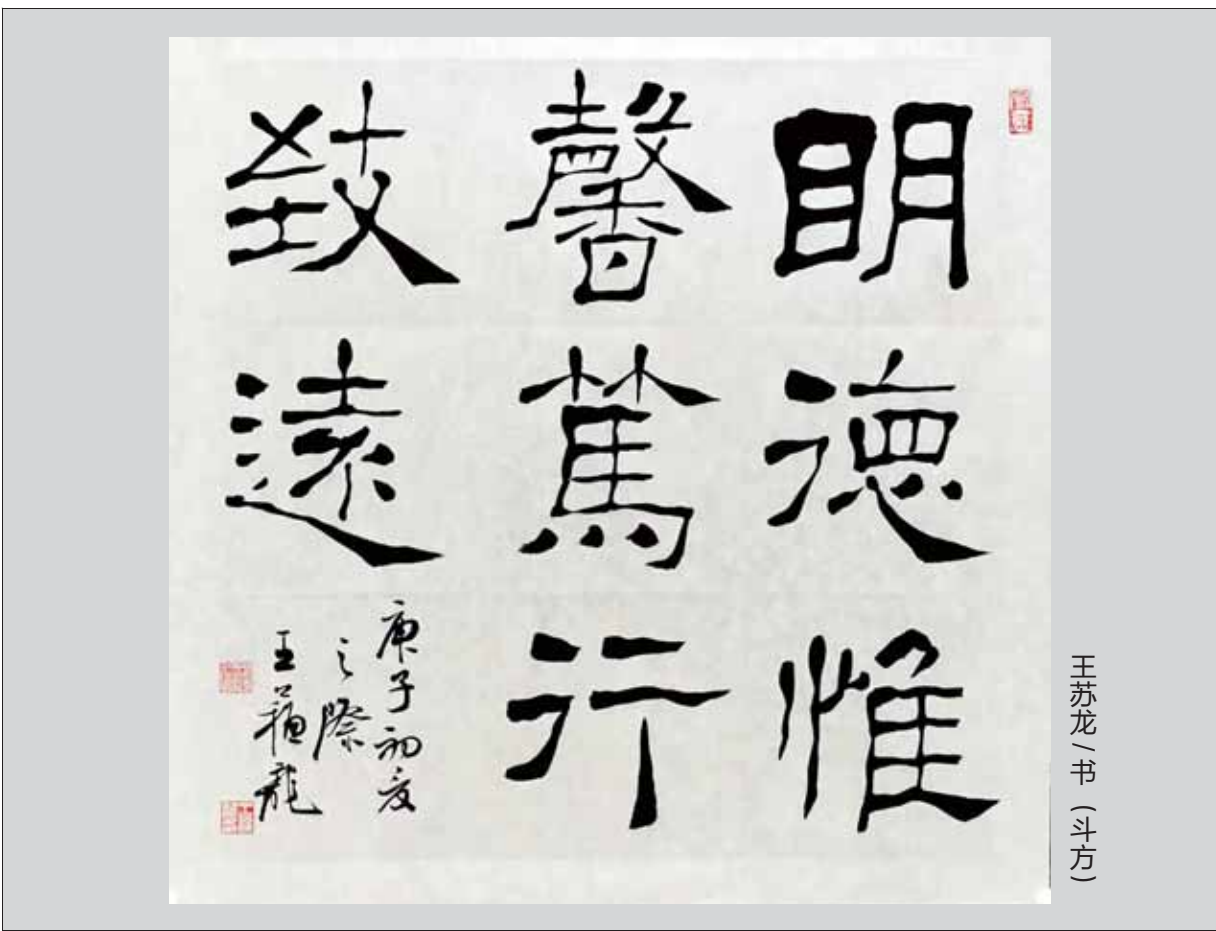 明德惟
馨篤行
致遠
庚子初夏
之際
王蘓龍
王苏龙/书（斗方）